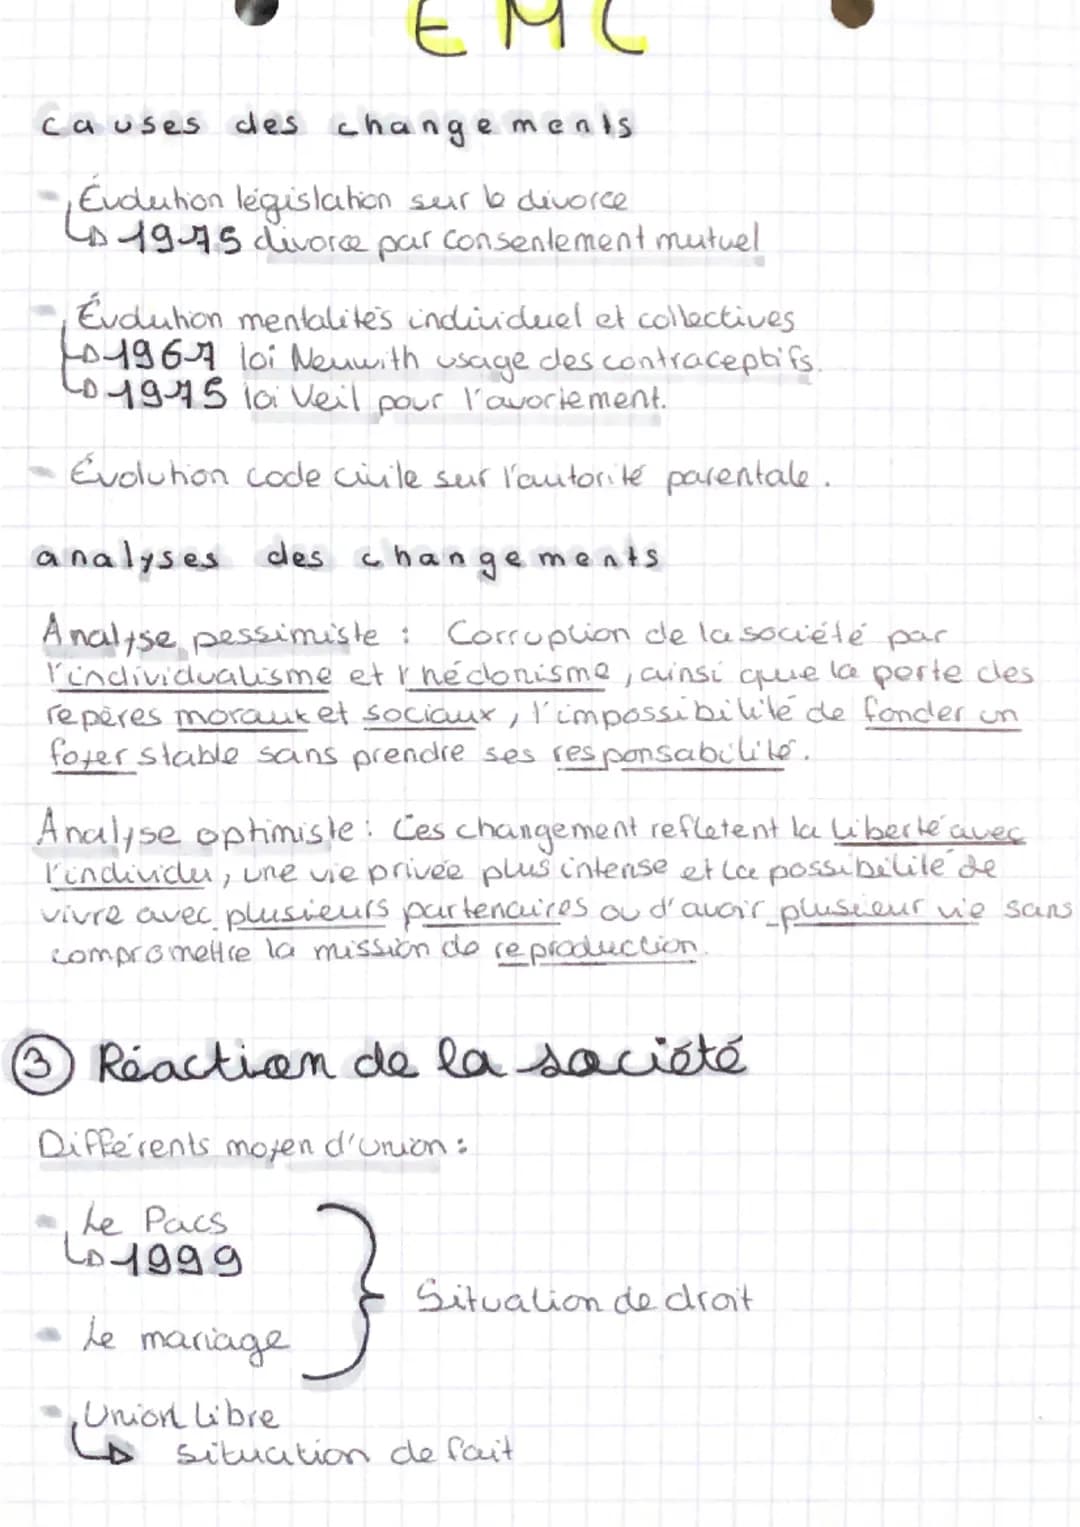 EMC
causes des changements
- Évolution législation sur le divorce
↳ 1975 divorce par consentement mutuel
- Évolution mentalités individuel et collectives
↳ 1967 loi Neuwith usage des contraceptifs.
↳ 1975 loi Veil pour l'avortement.
- Évolution code civile sur l'autorité parentale.
analyses des changements
Analyse pessimiste : Corruption de la société par
l'individualisme et l'hédonisme, ainsi que la perte des
repères moraux et sociaux, l'impossibilité de fonder un
foyer stable sans prendre ses responsabilité.
Analyse optimiste : Ces changement refletent la liberté avec
l'individu, une vie privée plus intense et la possibilité de
vivre avec plusieurs partenaires ou d'avoir plusieur vie sans
compromettre la mission de reproduction.
③ Réaction de la société
Différents moyen d'union :
- Le Pacs
↳ 1999
- Le mariage
} Situation de droit
- Union libre
↳ situation de fait